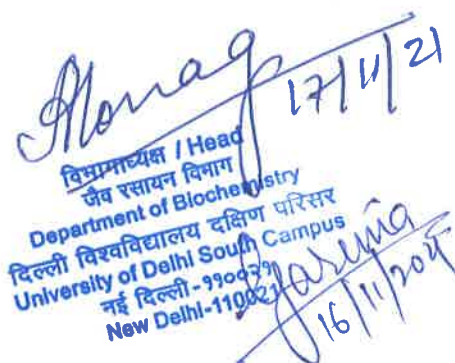 17/11/21
विभागाध्यक्ष / Head
जैव रसायन विभाग
Department of Biochemistry
दिल्ली विश्वविद्यालय दक्षिण परिसर
University of Delhi South Campus
नई दिल्ली-११००२१
New Delhi-110021
16/11/2021